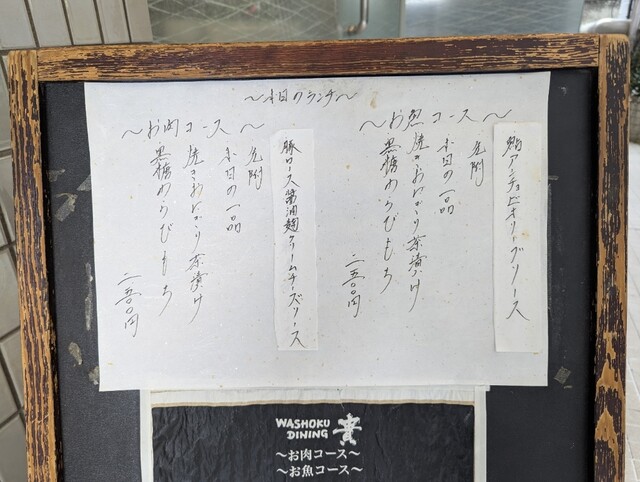 〜本日のランチ〜
〜お魚コース〜
鮪アンチョビオリーブソース
先附
本日の一品
焼きおにぎり茶漬け
黒糖わらびもち
二五〇〇円
〜お肉コース〜
豚ロース醤油麹クリームチーズソース
先附
本日の一品
焼きおにぎり茶漬け
黒糖わらびもち
二五〇〇円
WASHOKU
DINING
貴
〜お肉コース〜
〜お魚コース〜